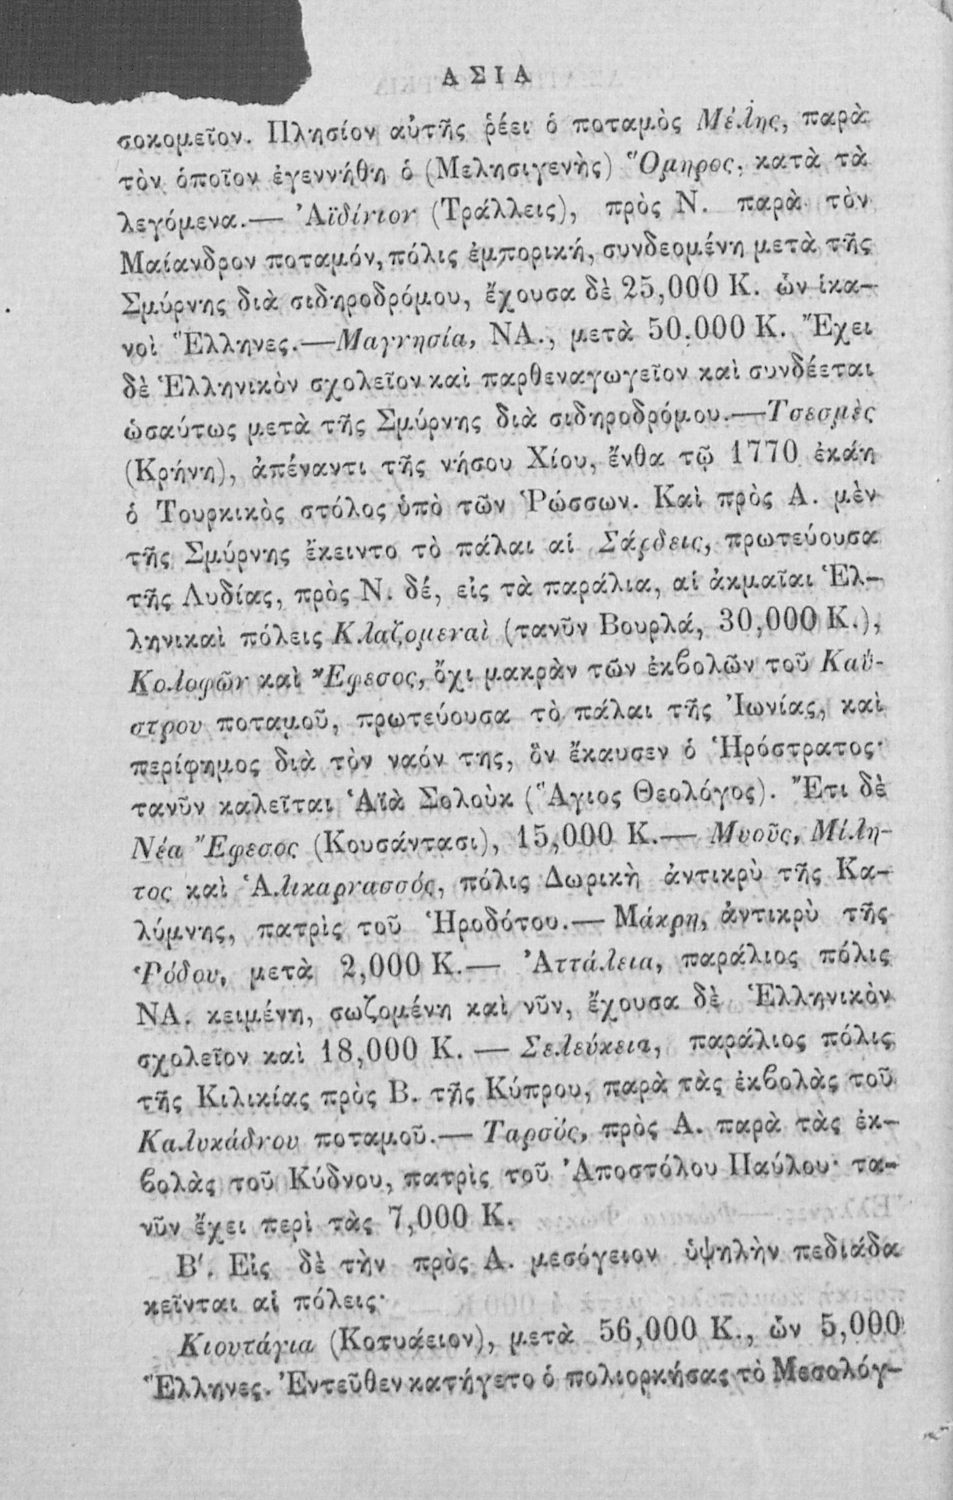 ΑΣΙΑ
σοκομεῖον. Πλησίον αὐτῆς ῥέει ὁ ποταμὸς Μέλης, παρὰ
τὸν ὁποῖον ἐγεννήθη ὁ (Μελησιγενὴς) Ὅμηρος, κατὰ τὰ
λεγόμενα.— Ἀϊδίνιον (Τράλλεις), πρὸς Ν. παρὰ τὸν
Μαίανδρον ποταμόν, πόλις ἐμπορική, συνδεομένη μετὰ τῆς
Σμύρνης διὰ σιδηροδρόμου, ἔχουσα δὲ 25,000 Κ. ὧν ἱκα-
νοὶ Ἕλληνες.—Μαγνησία, ΝΑ., μετὰ 50.000 Κ. Ἔχει
δὲ Ἑλληνικὸν σχολεῖον καὶ παρθεναγωγεῖον καὶ συνδέεται
ὡσαύτως μετὰ τῆς Σμύρνης διὰ σιδηροδρόμου.—Τσεσμὲς
(Κρήνη), ἀπέναντι τῆς νήσου Χίου, ἔνθα τῷ 1770 ἐκάη
ὁ Τουρκικὸς στόλος ὑπὸ τῶν Ῥώσσων. Καὶ πρὸς Α. μὲν
τῆς Σμύρνης ἔκειντο τὸ πάλαι αἱ Σάρδεις, πρωτεύουσα
τῆς Λυδίας, πρὸς Ν. δέ, εἰς τὰ παράλια, αἱ ἀκμαῖαι Ἑλ-
ληνικαὶ πόλεις Κλαζομεναὶ (τανῦν Βουρλά, 30,000 Κ.),
Κολοφῶν καὶ Ἔφεσος, ὄχι μακρὰν τῶν ἐκβολῶν τοῦ Καΰ-
στρου ποταμοῦ, πρωτεύουσα τὸ πάλαι τῆς Ἰωνίας, καὶ
περίφημος διὰ τὸν ναόν της, ὃν ἔκαυσεν ὁ Ἡρόστρατος·
τανῦν καλεῖται Ἁϊὰ Σολοὺκ (Ἅγιος Θεολόγος). Ἔτι δὲ
Νέα Ἔφεσος (Κουσάντασι), 15,000 Κ.— Μυοῦς, Μίλη-
τος καὶ Ἁλικαρνασσός, πόλις Δωρικὴ ἀντικρὺ τῆς Κα-
λύμνης, πατρὶς τοῦ Ἡροδότου.— Μάκρη, ἀντικρὺ τῆς
Ῥόδου, μετὰ 2,000 Κ.— Ἀττάλεια, παράλιος πόλις
ΝΑ. κειμένη, σωζομένη καὶ νῦν, ἔχουσα δὲ Ἑλληνικὸν
σχολεῖον καὶ 18,000 Κ. — Σελεύκεια, παράλιος πόλις
τῆς Κιλικίας πρὸς Β. τῆς Κύπρου, παρὰ τὰς ἐκβολὰς τοῦ
Καλυκάδνου ποταμοῦ.— Ταρσός, πρὸς Α. παρὰ τὰς ἐκ-
βολὰς τοῦ Κύδνου, πατρὶς τοῦ Ἀποστόλου Παύλου· τα-
νῦν ἔχει περὶ τὰς 7,000 Κ.
Β′. Εἰς δὲ τὴν πρὸς Α. μεσόγειον ὑψηλὴν πεδιάδα
κεῖνται αἱ πόλεις·
Κιουτάγια (Κοτυάειον), μετὰ 56,000 Κ., ὧν 5,000
Ἕλληνες. Ἐντεῦθεν κατήγετο ὁ πολιορκήσας τὸ Μεσολόγ-